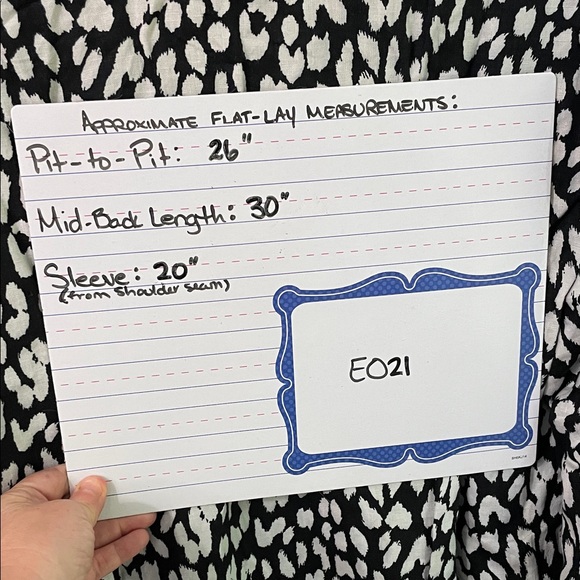 APPROXIMATE FLAT-LAY MEASUREMENTS:
Pit-to-Pit: 26"
Mid-Back Length: 30"
Sleeve: 20"
(from shoulder seam)
EO21